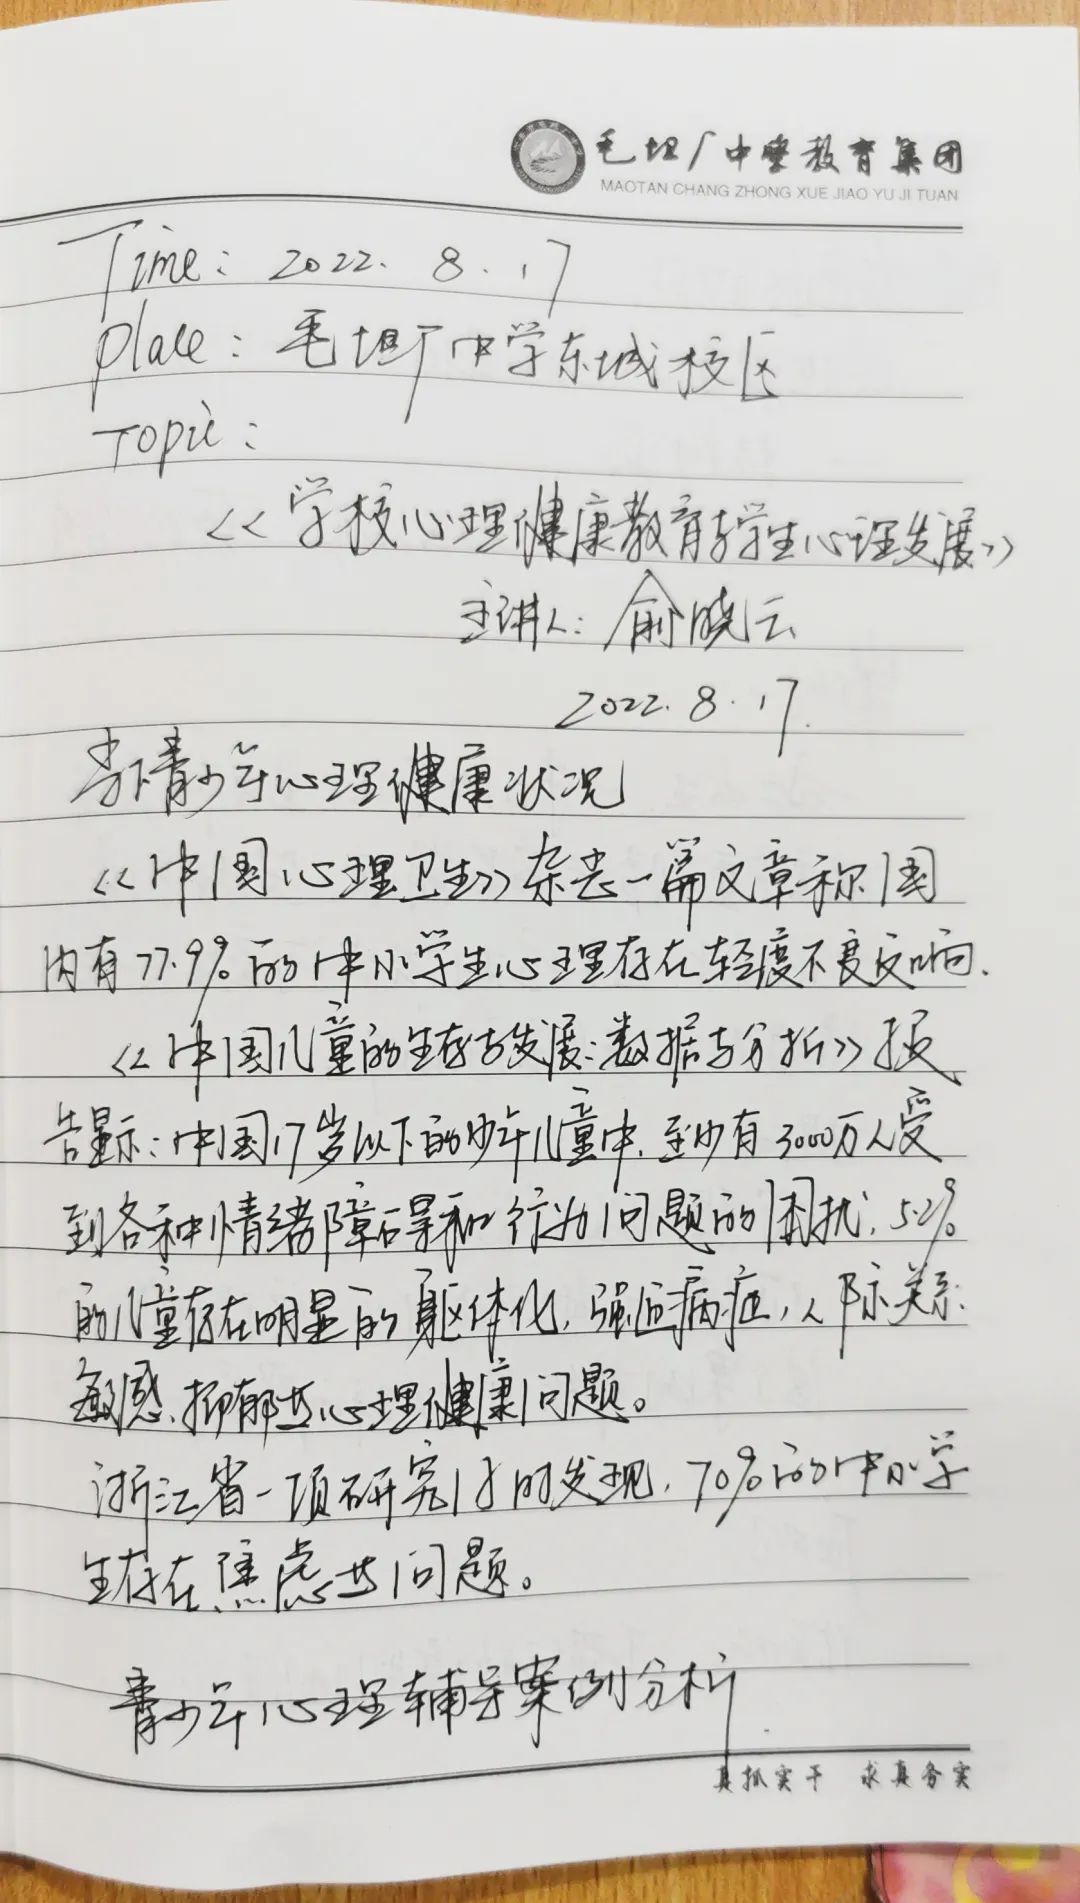 毛坦厂中学教育集团
MAOTAN CHANG ZHONG XUE JIAO YU JI TUAN
Time: 2022. 8. 17
place: 毛坦厂中学东城校区
Topic:
<<学校心理健康教育与学生心理发展>>
主讲人: 俞晓云
2022. 8. 17.
当下青少年心理健康状况
<<中国心理卫生>>杂志一篇文章称国
内有77.9%的中小学生心理存在轻度不良反响.
<<中国儿童的生存与发展:数据与分析>>报
告显示:中国17岁以下的少年儿童中,至少有3000万人受
到各种情绪障碍和行为问题的困扰,5.2%
的儿童存在明显的躯体化,强迫病症,人际关系
敏感、抑郁共心理健康问题。
浙江省一项研究同时发现,70%的中小学
生存在焦虑共问题。
青少年心理辅导案例分析
真抓实干 求真务实